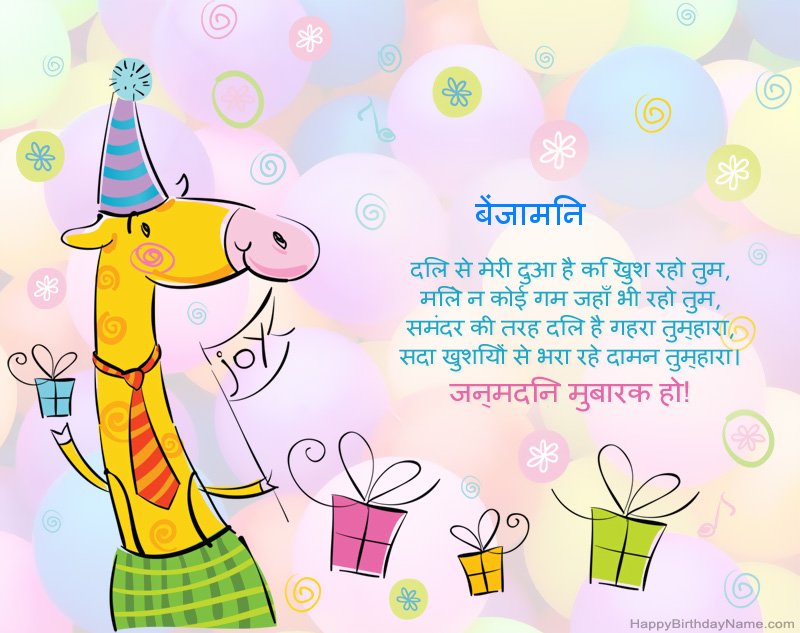 बेंजामनि
दलि से मेरी दुआ है कि खुश रहो तुम,
मलिे न कोई गम जहाँ भी रहो तुम,
समंदर की तरह दलि है गहरा तुम्हारा,
सदा खुशयिों से भरा रहे दामन तुम्हारा।
जन्मदनि मुबारक हो!
joy
HappyBirthdayName.com